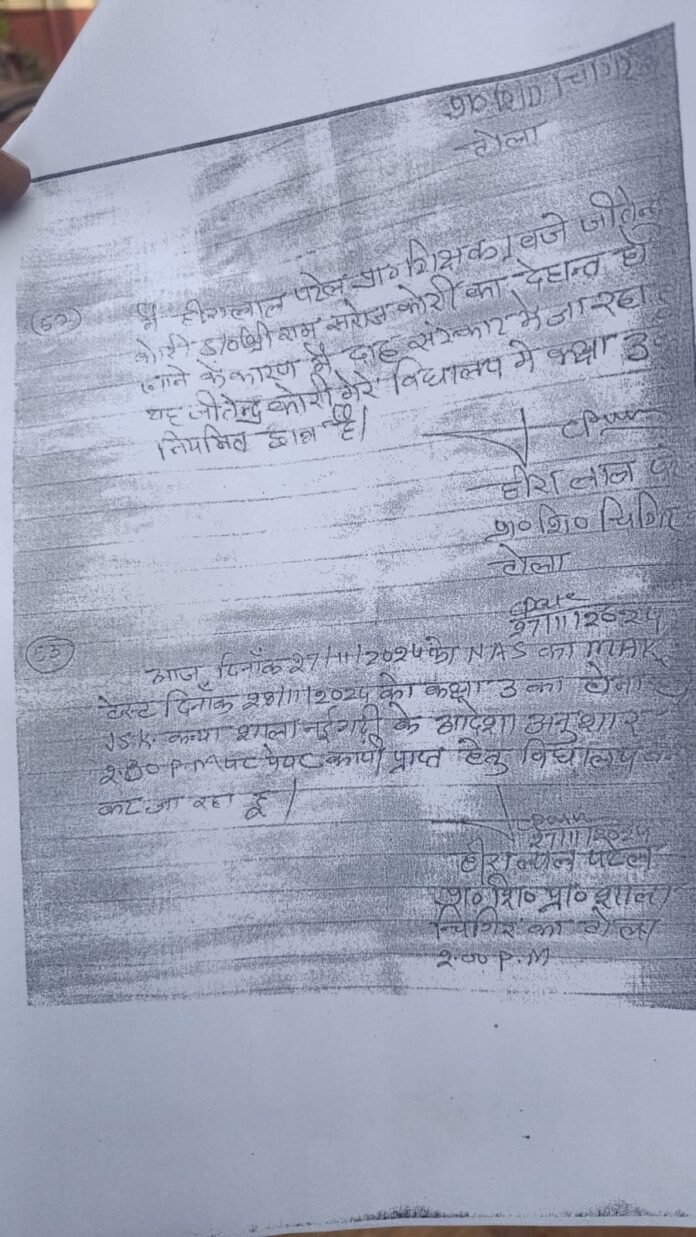 टोला
(52) मै हीरालाल पटेल प्रा० शिक्षक 1 बजे जीतेन्द्र
कोरी S/० श्री राम सरोज कोरी का देहान्त हो
जाने के कारण मै दाह संस्कार मे जा रहा
यह जीतेन्द्र कोरी मेरे विद्यालय मे कक्षा 3
नियमित छात्र है।
हीरा लाल
प्र० शि० चिगिर
टोला
27/11/2024
(53) आज दिनाँक 27/11/2024 को NAS का
टेस्ट दिनाँक 28/11/2024 को कक्षा 3 का होना
J.S.K. कन्या शाला नईगढ़ी के आदेश अनुशार
2:30 P.M पर पेपर कापी प्राप्त हेतु विद्यालय
कर जा रहा हूं।
27/11/2024
हीरा लाल पटेल
प्र० शि० प्रा० शाला
चिगिर का टोला
2.00 P.M